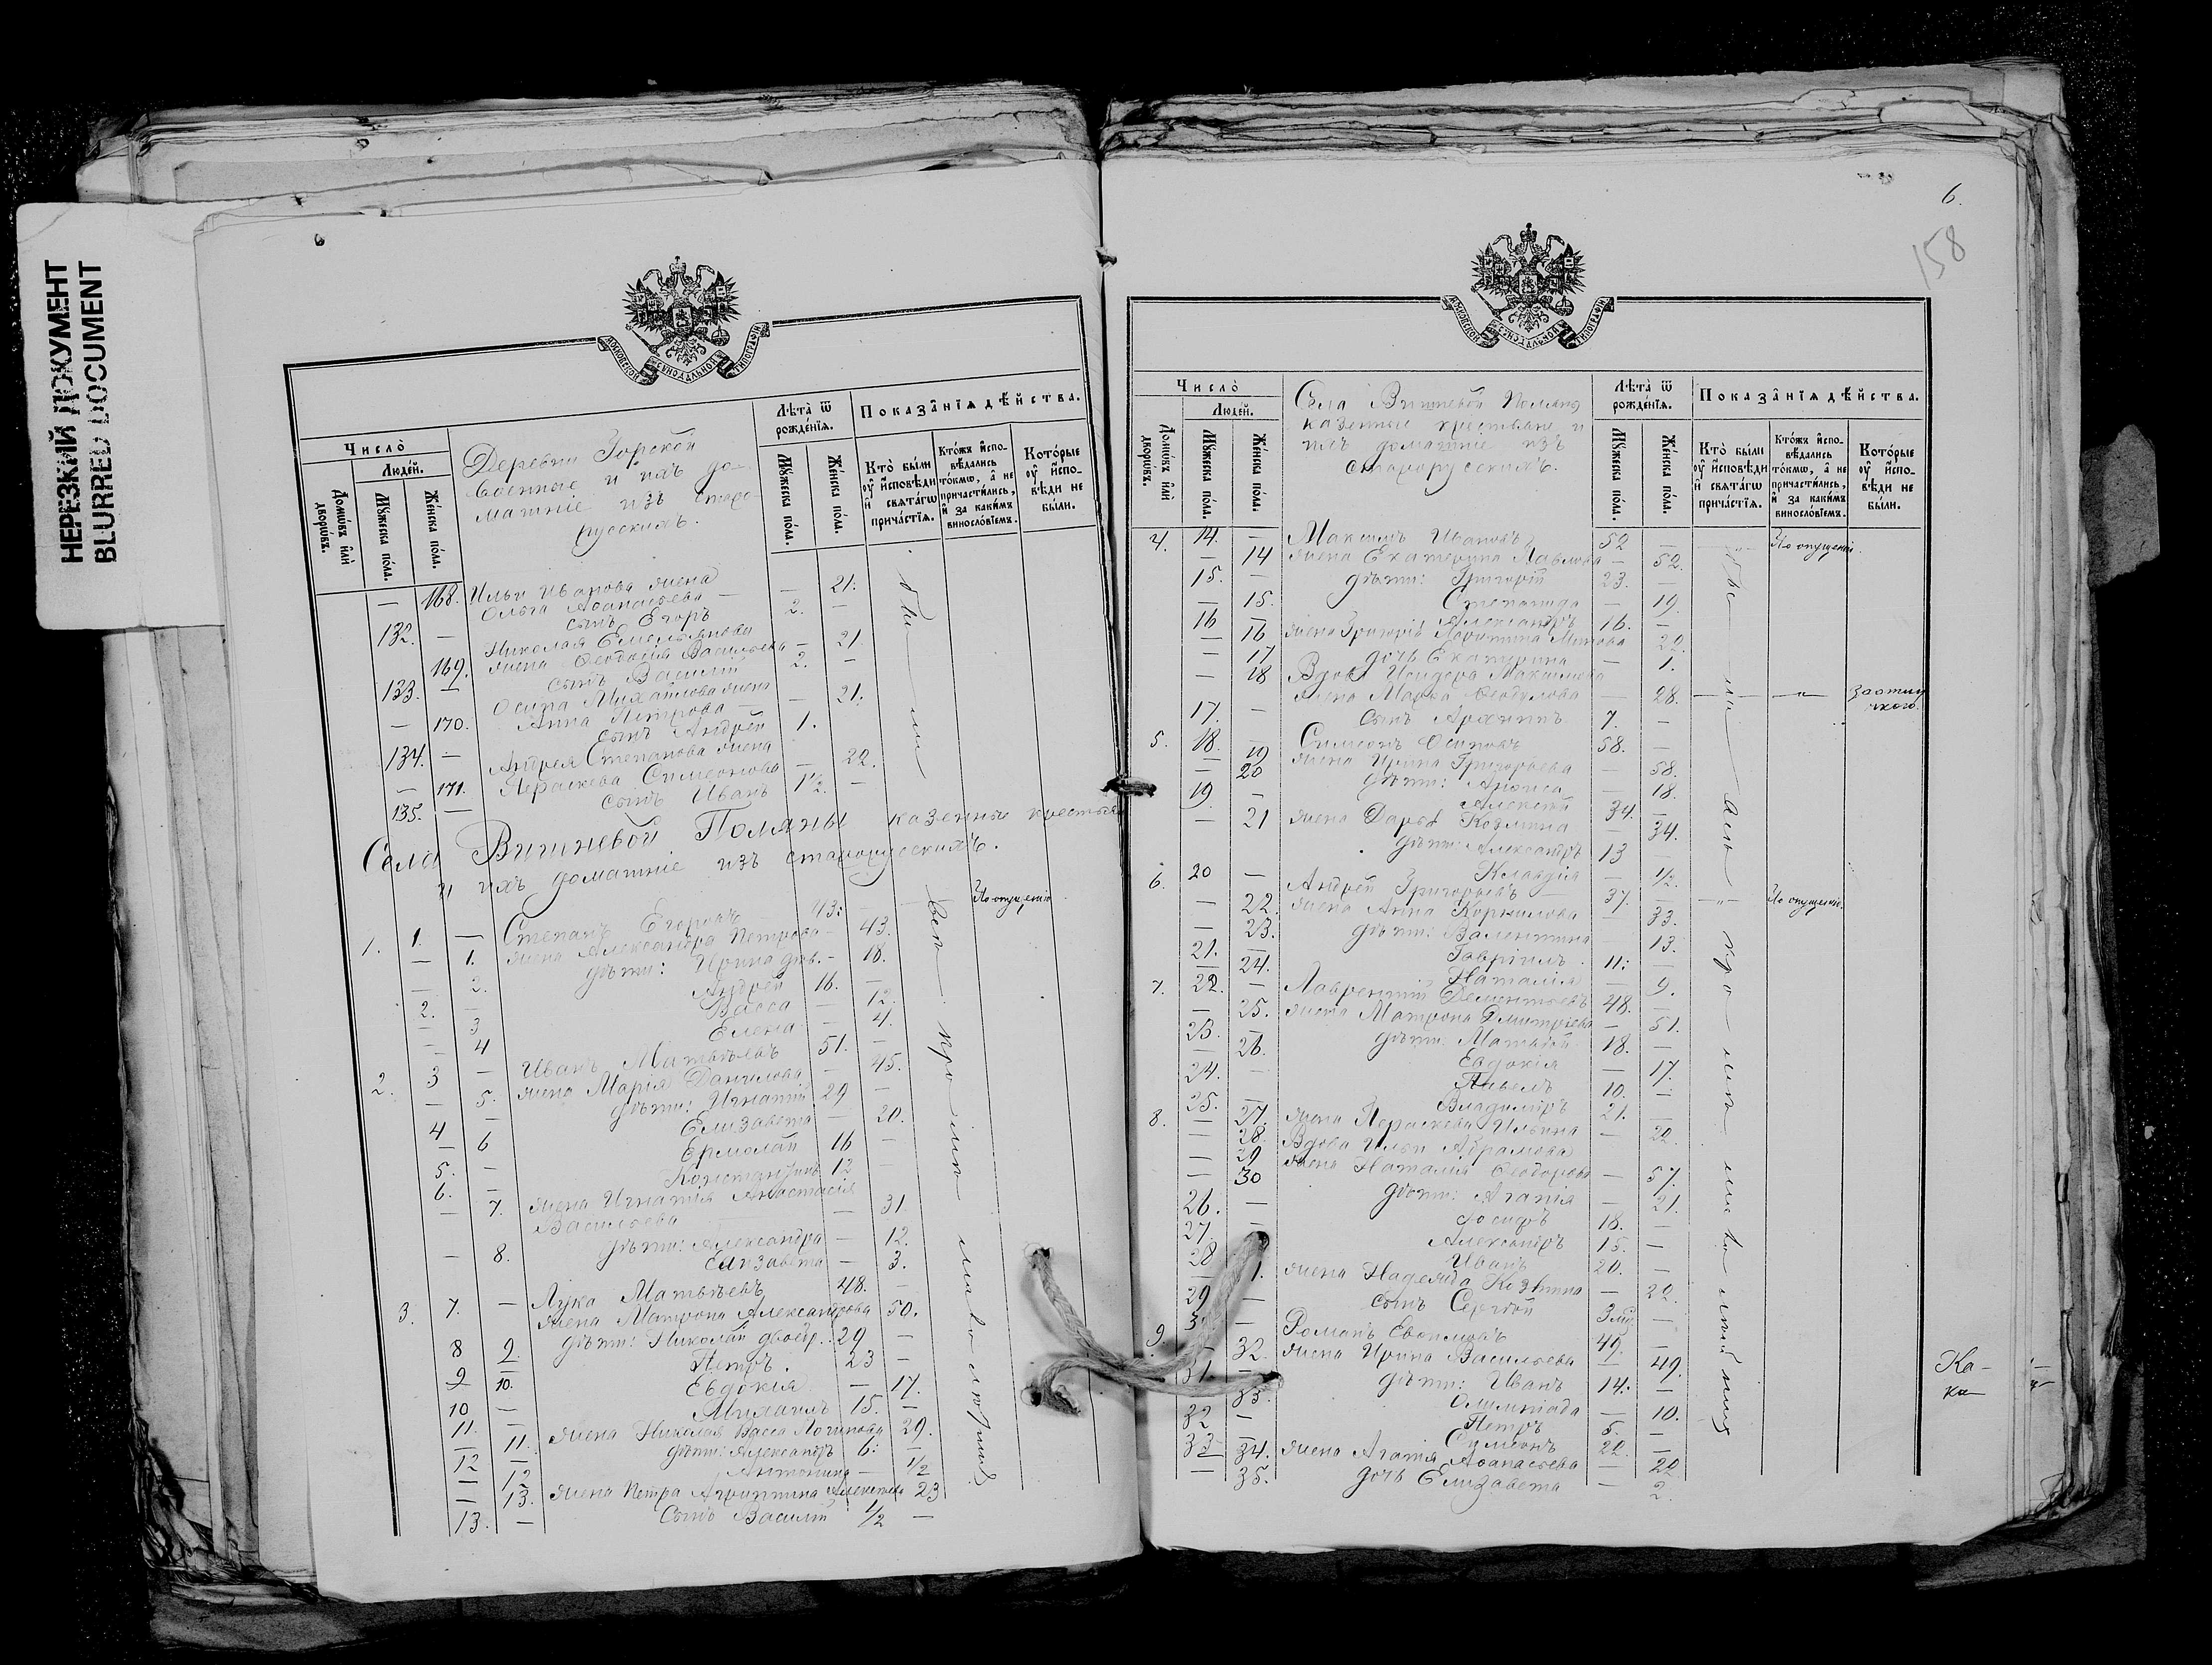 НЕРЕЗКИЙ ДОКУМЕНТ
BLURRED DOCUMENT
МОСКОВСКОЙ СѴНОДАЛЬНОЙ ТИПОГРАФІИ
Число̀
Домѡвъ и҆лѝ дворѡвъ.
Люде́й.
Мꙋ́жеска по́ла.
Же́нска по́ла.
Деревни Горской
военные и ихъ до-
машніе изъ старо
русскихъ.
Лѣта̀ ѿ рожде́нїѧ.
Мꙋ́жеска по́ла.
Же́нска по́ла.
Показа̂нїѧ дѣ́йства.
Кто̀ бы́ли оу҆ и҆сповѣ́ди и҆ свѧта́гѡ прича́стїѧ.
Кто́жъ и҆спо-вѣ́дались то́кмѡ, а҆ не причасти́лись, и҆ за каки́мъ винослове́емъ.
Кото́рые оу҆ и҆спо-вѣ́ди не бы́ли.
— 168. Ильи Иванова жена
Ольга Аѳанасьева — — 21.
132. — сынъ Егоръ 2. —
Николая Емельянова
169. жена Ѳеодосія Васильева — 21.
133. — сынъ Василій 2. —
Осипа Михайлова жена
— 170. Анна Петрова — — 21.
134. — сынъ Андрей 1.
Андрея Степанова жена
— 171. Параскева Симеонова — 22.
135. — сынъ Иванъ 1½. —
были
Села Вишневой Поляны казенные крестьяне
и ихъ домашніе изъ старорусскихъ.
1. 1. — Степанъ Егоровъ 43. — По опущенію
— 1. жена Александра Петрова — 43.
— 2. дѣти: Ирина дѣв. — 18.
2. — Андрей 16. —
— 3 Васса — 12.
— 4 Елена — 4.
2. 3 — Иванъ Матвѣевъ 51. —
— 5. жена Марія Данилова — 45.
4 — дѣти: Игнатій 29 —
— 6 Елизавета — 20.
5. — Ермолай 16 —
6. — Константинъ 12 —
— 7. жена Игнатія Анастасія
Васильева — 31.
— 8. дѣти: Александра — 12.
Елизавета — 3.
3. 7. — Лука Матвѣевъ 48. —
жена Матрона Александрова 50.
8 9. дѣти: Николай 29 —
9 10. Петръ. 23 —
Евдокія — 17.
10 — Михаилъ 15. —
11. 11. жена Николая Васса Логинова 29.
12 — дѣти: Александръ 6. —
— 12 Антонина — ½
— 13. жена Петра Агриппина Алексѣева 23
13. — сынъ Василій ½ —
6.
158
МОСКОВСКОЙ СѴНОДАЛЬНОЙ ТИПОГРАФІИ
Число̀
Домѡвъ и҆лѝ дворѡвъ.
Люде́й.
Мꙋ́жеска по́ла.
Же́нска по́ла.
Села Вишневой Поляны
казенные крестьяне и
ихъ домашніе изъ
старорусскихъ.
Лѣта̀ ѿ рожде́нїѧ.
Мꙋ́жеска по́ла.
Же́нска по́ла.
Показа̂нїѧ дѣ́йства.
Кто̀ бы́ли оу҆ и҆сповѣ́ди и҆ свѧта́гѡ прича́стїѧ.
Кто́жъ и҆спо-вѣ́дались то́кмѡ, а҆ не причасти́лись, и҆ за каки́мъ винослове́емъ.
Кото́рые оу҆ и҆спо-вѣ́ди не бы́ли.
4. 14. — Максимъ Ивановъ 52 — По опущенію.
— 14 жена Екатерина Павлова — 52.
15. — дѣти: Григорій 23. —
— 15. Степанида — 19.
16 — Александръ 16. —
— 16 жена Григорія 22.
— 17 дочь Екатерина — 1.
— 18 Вдова Исидора Максимова
жена Марѳа Ѳеодулова — 28.
17. — сынъ Архиппъ 7. —
5. 18. — Симеонъ Осиповъ 58. —
— 19 жена Ирина Григорьева — 58.
— 20 дѣти: Анѳиса — 18.
19. — Алексѣй 34. —
— 21 жена Дарья Козмина — 34.
дѣти: Александръ 13 —
Клавдія — ½.
6. 20 — Андрей Григорьевъ — 37. — По опущенію.
— 22. жена Анна Корнилова — 33.
— 23. дѣти: Валентина — 13.
21. — Гавріилъ 11. —
— 24. Наталія — 9.
7. 22. — Лаврентій Дементьевъ 48. —
— 25. жена Матрона Дмитріева — 51.
23. — дѣти: Матвѣй 18. —
— 26. Евдокія — 17.
24. — Павелъ 10. —
25. — Владиміръ 21. —
8. — 27. жена Параскева Ильина — 22.
— 28. Вдова Ильи Абрамова
— 29 жена Наталія Ѳеодорова — 57.
— 30 дѣти: Агапія — 21.
26. — Іосифъ 18. —
27. — Александръ 15. —
28 — Иванъ 20. —
жена Надежда Козмина — 22.
29 — сынъ Сергѣй 3 —
9. — Романъ Евѳимовъ 49. —
32. жена Ирина Васильева — 49.
31. — дѣти: Иванъ 14. —
33. Олимпіада — 10.
32 — Петръ 5. —
33 — Симеонъ 22. —
34. жена Агапія Аѳанасьева — 22
— 35. дочь Елизавета — 2.